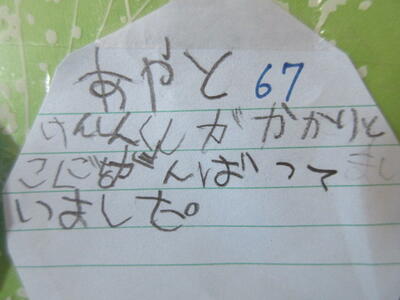 あやと 67
けんしんくんがかかりと
こしごがんばってまし
いました。